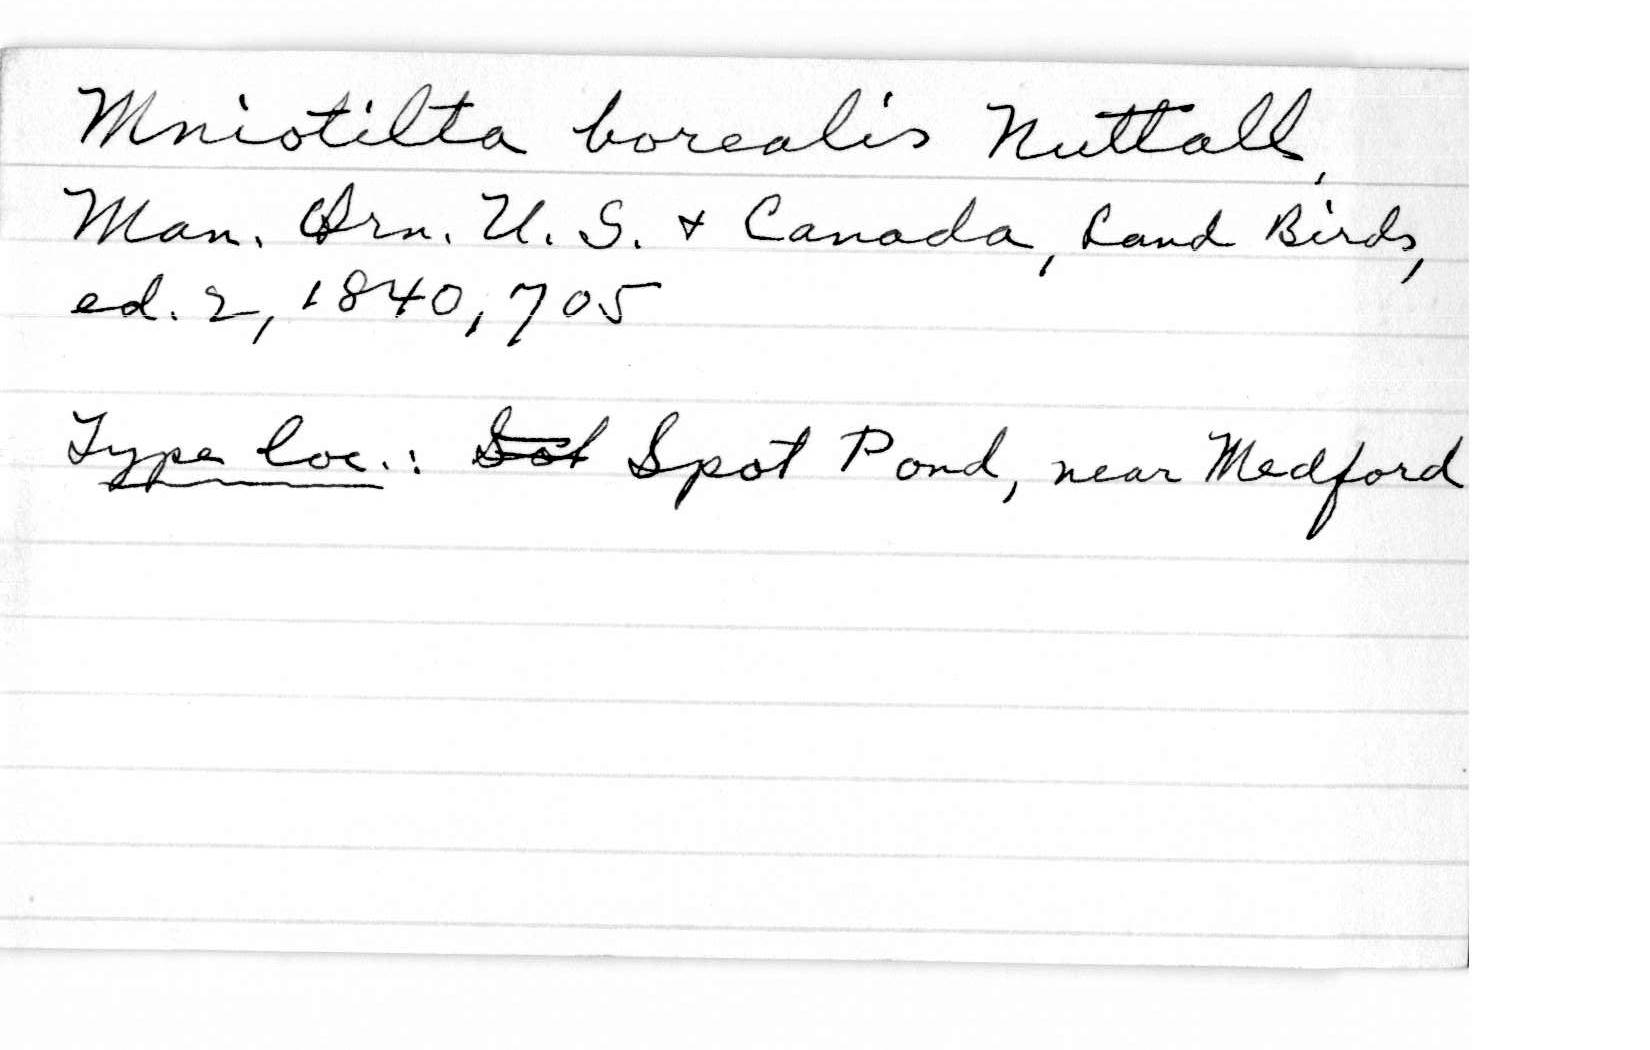 Mniotilta borealis Nuttall,
Man. Orn. U. S. & Canada, Land Birds,
ed. 2, 1840, 705
Type loc.: Spot Pond, near Medford